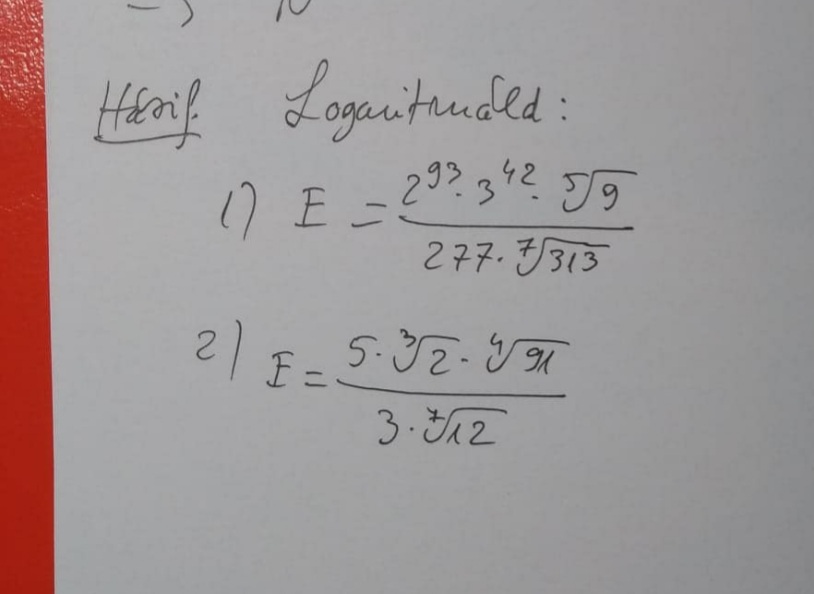 Házif. Logaritmáld:
1) E = \frac{2^{93} \cdot 3^{42} \cdot \sqrt[5]{9}}{277 \cdot \sqrt[7]{313}}
2) E = \frac{5 \cdot \sqrt[3]{2} \cdot \sqrt[4]{91}}{3 \cdot \sqrt[7]{12}}